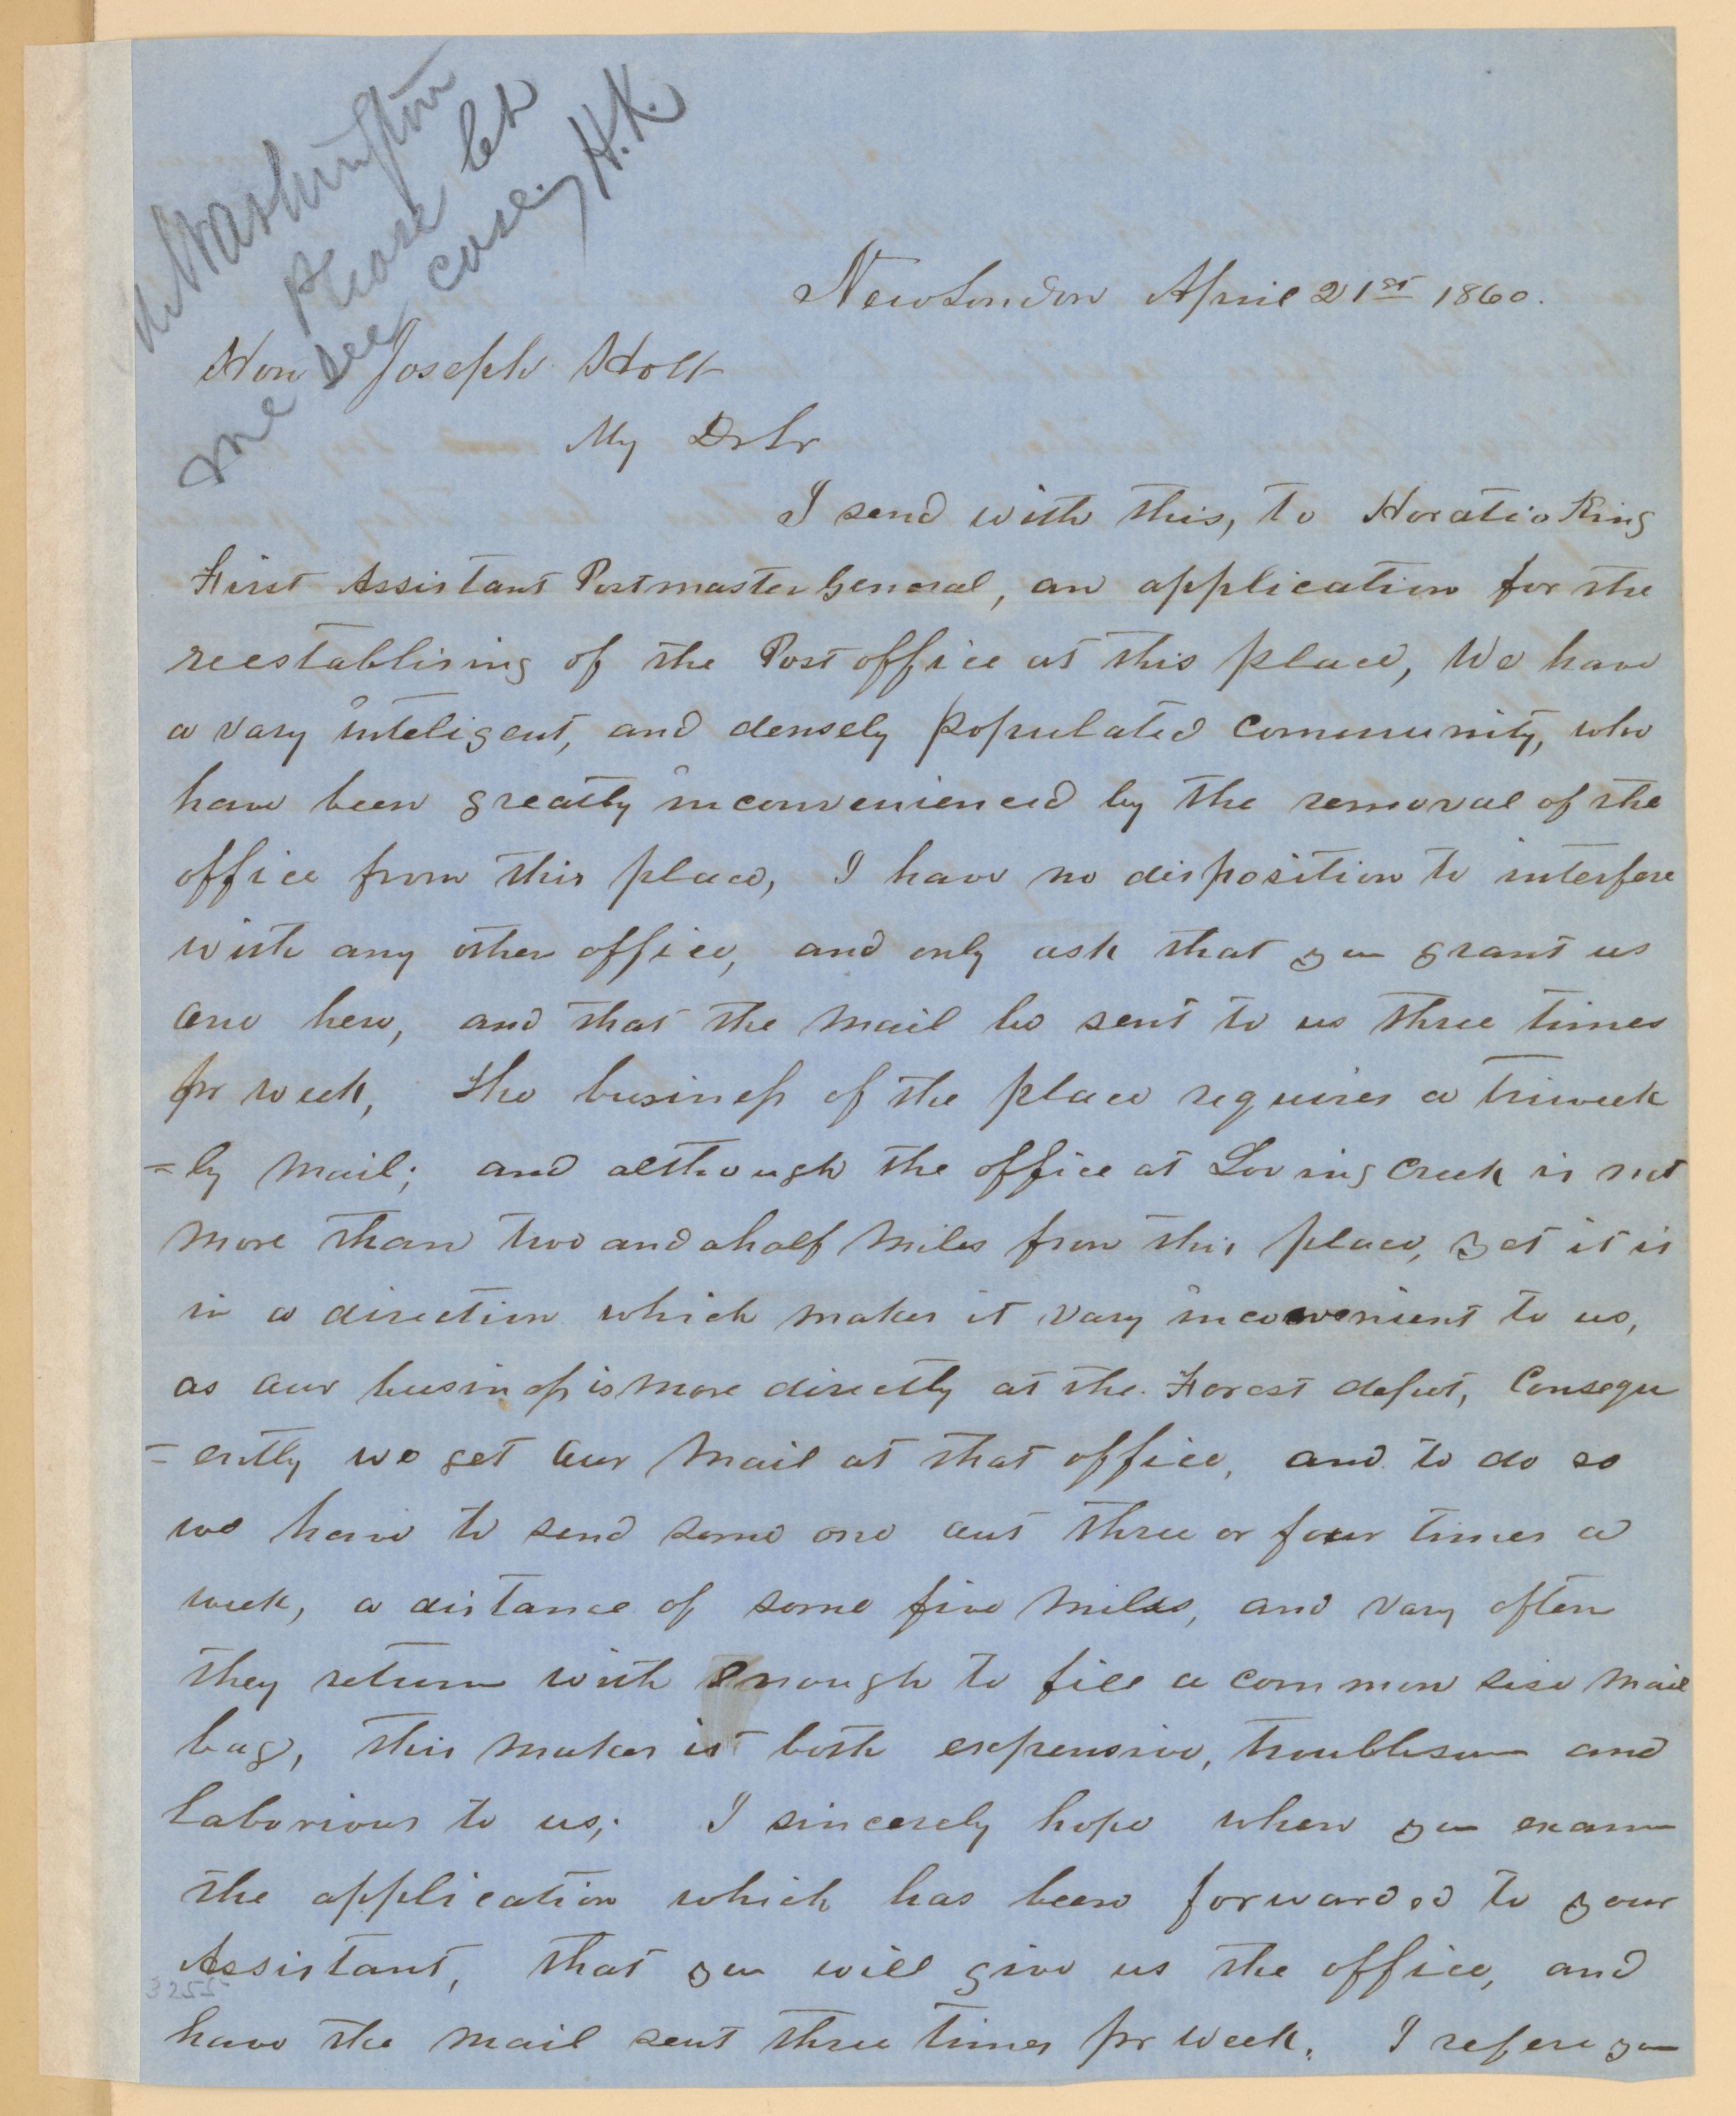 Mr Washington
Please let
me see case, H.K.
New London April 21st 1860.
Hon Joseph Holt
My Dr Sr
I send with this, to Horatio King
First Assistant Postmaster General, an application for the
reestablising of the Post office at this place, We have
a vary inteligent, and densely populated community, who
have been greatly inconvenienced by the removal of the
office from this place, I have no disposition to interfere
with any other office, and only ask that you grant us
one here, and that the mail be sent to us three times
pr week, The business of the place requires a triweek
=ly mail; and although the office at Loving Creek is not
more than two and a half miles from this place, yet it is
in a direction which makes it vary inconvenient to us,
as our business is more directly at the Forest depot, Consequ
=ently we get our mail at that office, and to do so
we have to send some one out three or four times a
week, a distance of some five miles, and vary often
they return with enough to fill a common sise mail
bag, this makes it both expensive, troublesom and
laborious to us; I sincerely hope when you examin
the application which has been forwarded to your
Assistant, that you will give us the office, and
have the mail sent three times pr week. I refere you
3255